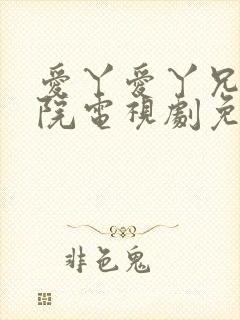 愛丫愛丫兄
院電視劇免
非色鬼